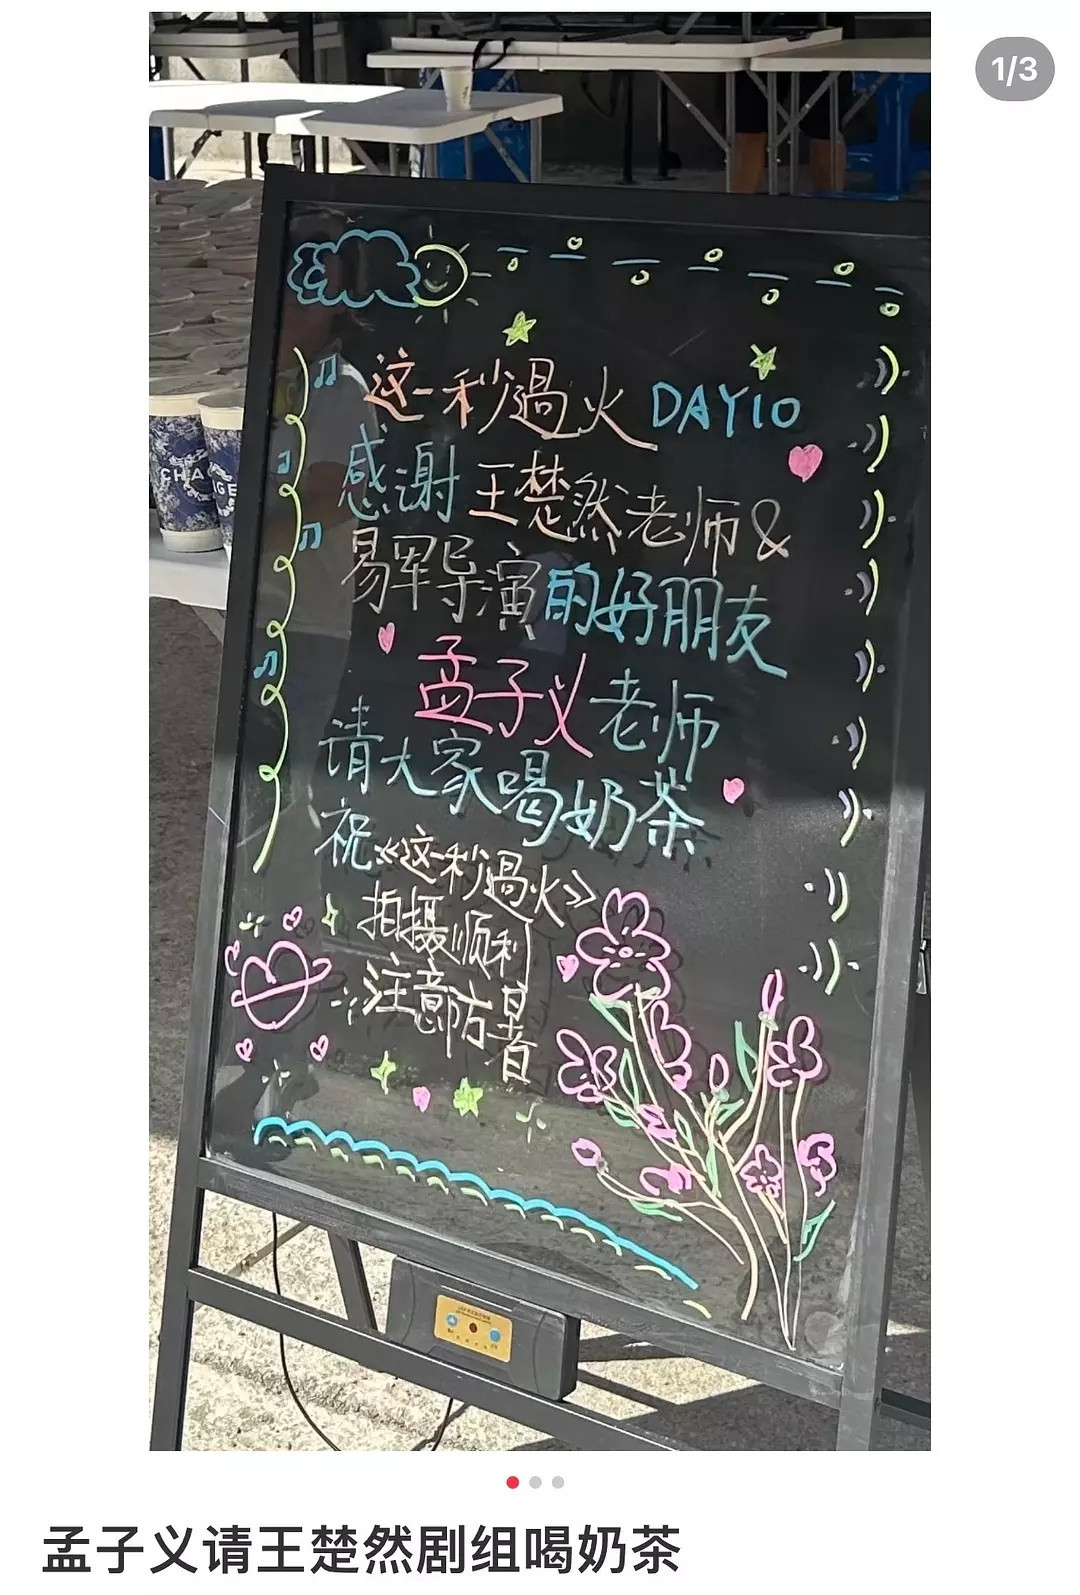 1/3
这一秒過火 DAY10
感谢王楚然老师&
易军导演的好朋友
孟子义老师
请大家喝奶茶
祝《这一秒過火》
拍摄顺利
注意防暑
CHA
GE
孟子义请王楚然剧组喝奶茶